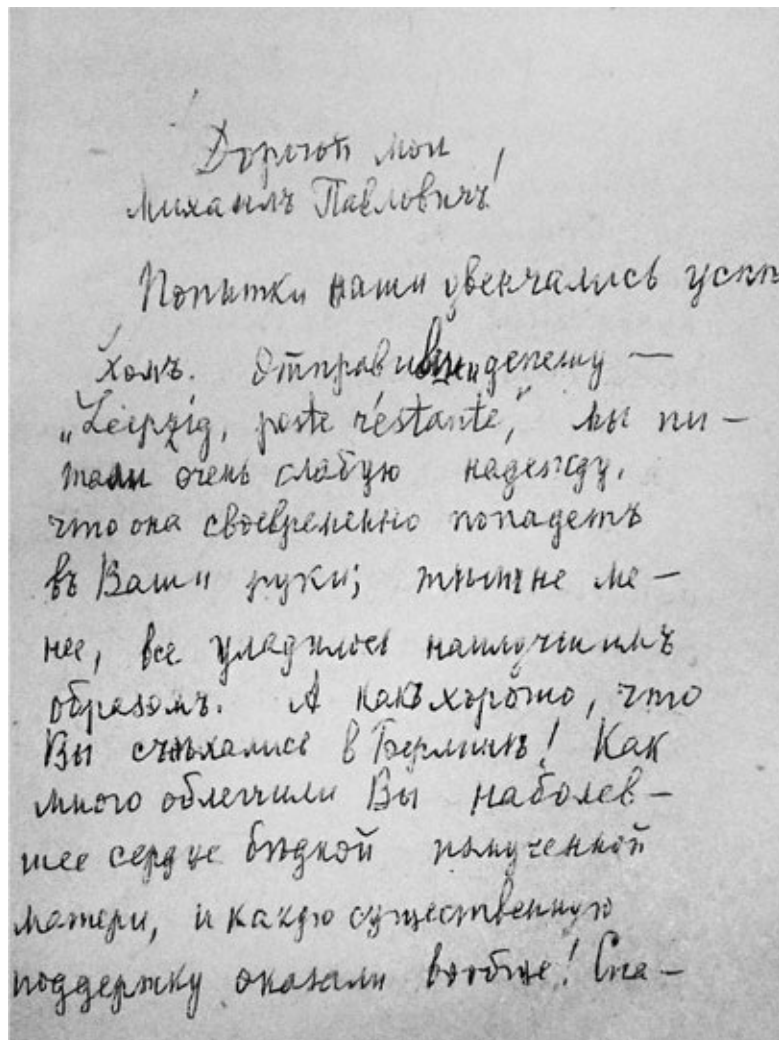 Дорогой мой
Михаилъ Павловичъ!
Попытки наши увенчались успѣ
хомъ. Отправивши депешу —
„Leipzig, poste réstante“, мы пи —
тали очень слабую надежду,
что она своевременно попадетъ
въ Ваши руки; тѣмъ не ме —
нее, все уладилось наилучшимъ
образомъ. А какъ хорошо, что
Вы съѣхались в Берлинѣ! Как
много облегчили Вы наболев —
шее сердце бѣдной измученной
матери, и какую существенную
поддержку оказали вообще! Спа —